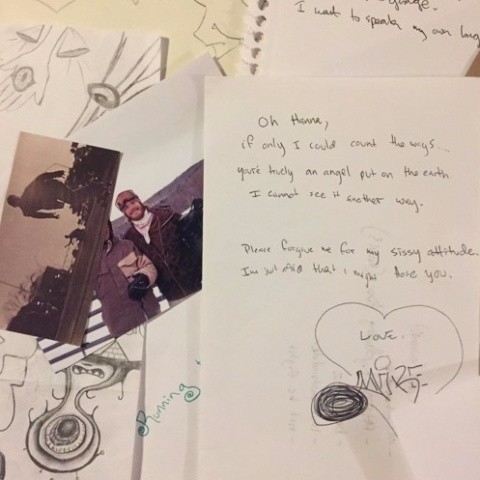 I want to speak my own lang
Oh Hanna,
if only I could count the ways...
you're truely an angel put on the earth
I cannot see it another way.
Please forgive me for my sissy attitude.
I'm just that I might lose you.
Love.
MIKE
@Running@